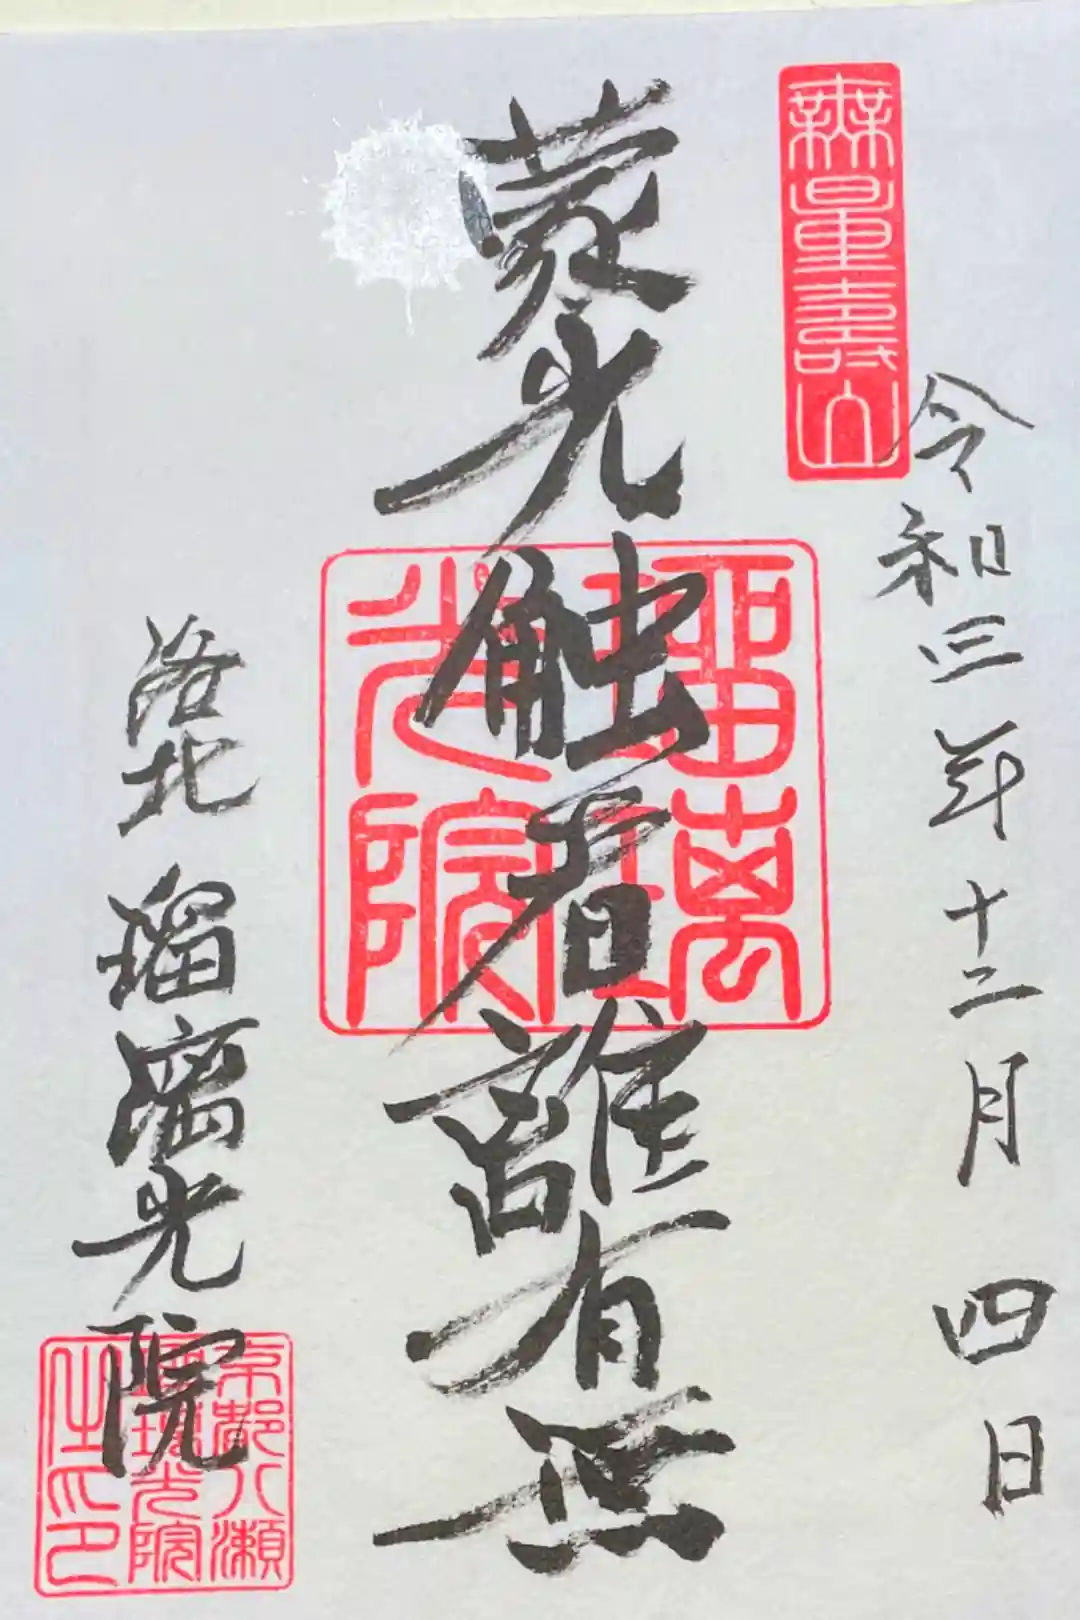 無量壽山
令和三年十二月四日
蒙光触者離有無
瑠璃
光院
洛北 瑠璃光院
京都八瀬
瑠璃光院
之印